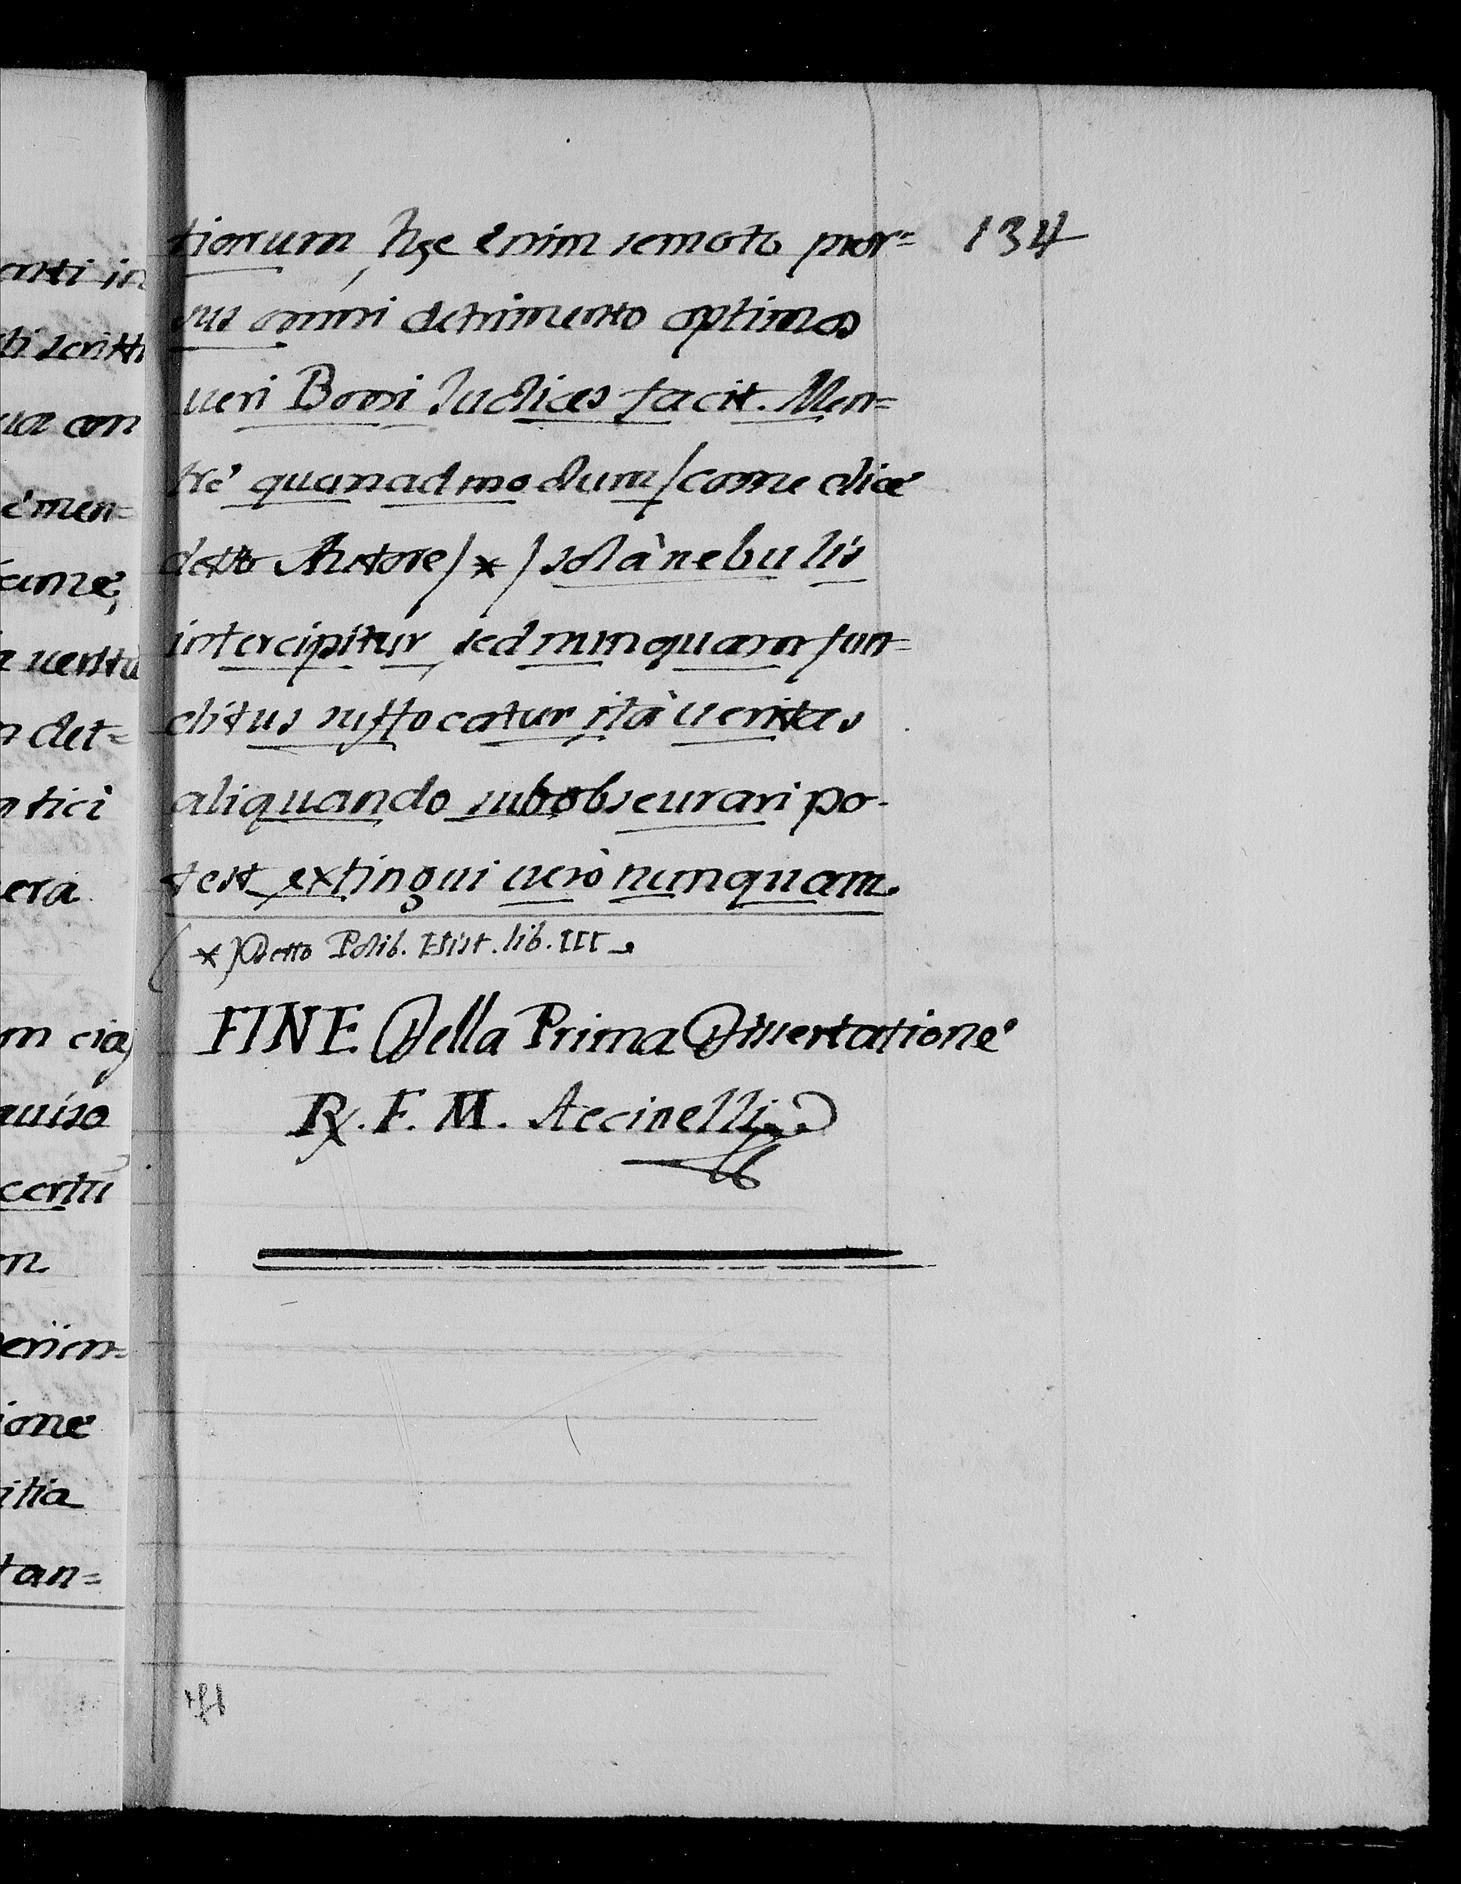 tiorum, hæc enim remoto pror= 134
sus omni detrimento optimos
ueri Boni Iudices facit. Men=
tre' quanadmodum/come dice
detto Autore/*/solà nebulis
intercipitur, sed nunquam fun=
ditus suffocatur ità ueritas
aliquando subobscurari po-
test, extingui uerò nunquam.
(*) Detto Polib. Hist. lib. III.
FINE Della Prima Dissertatione'
R. F. M. Accinelli
anti in
ti scritti
ua con
e' men=
ueritu
n det=
ntici
era
m cia
auiso
certu
on
perien=
ione
itia
tan=